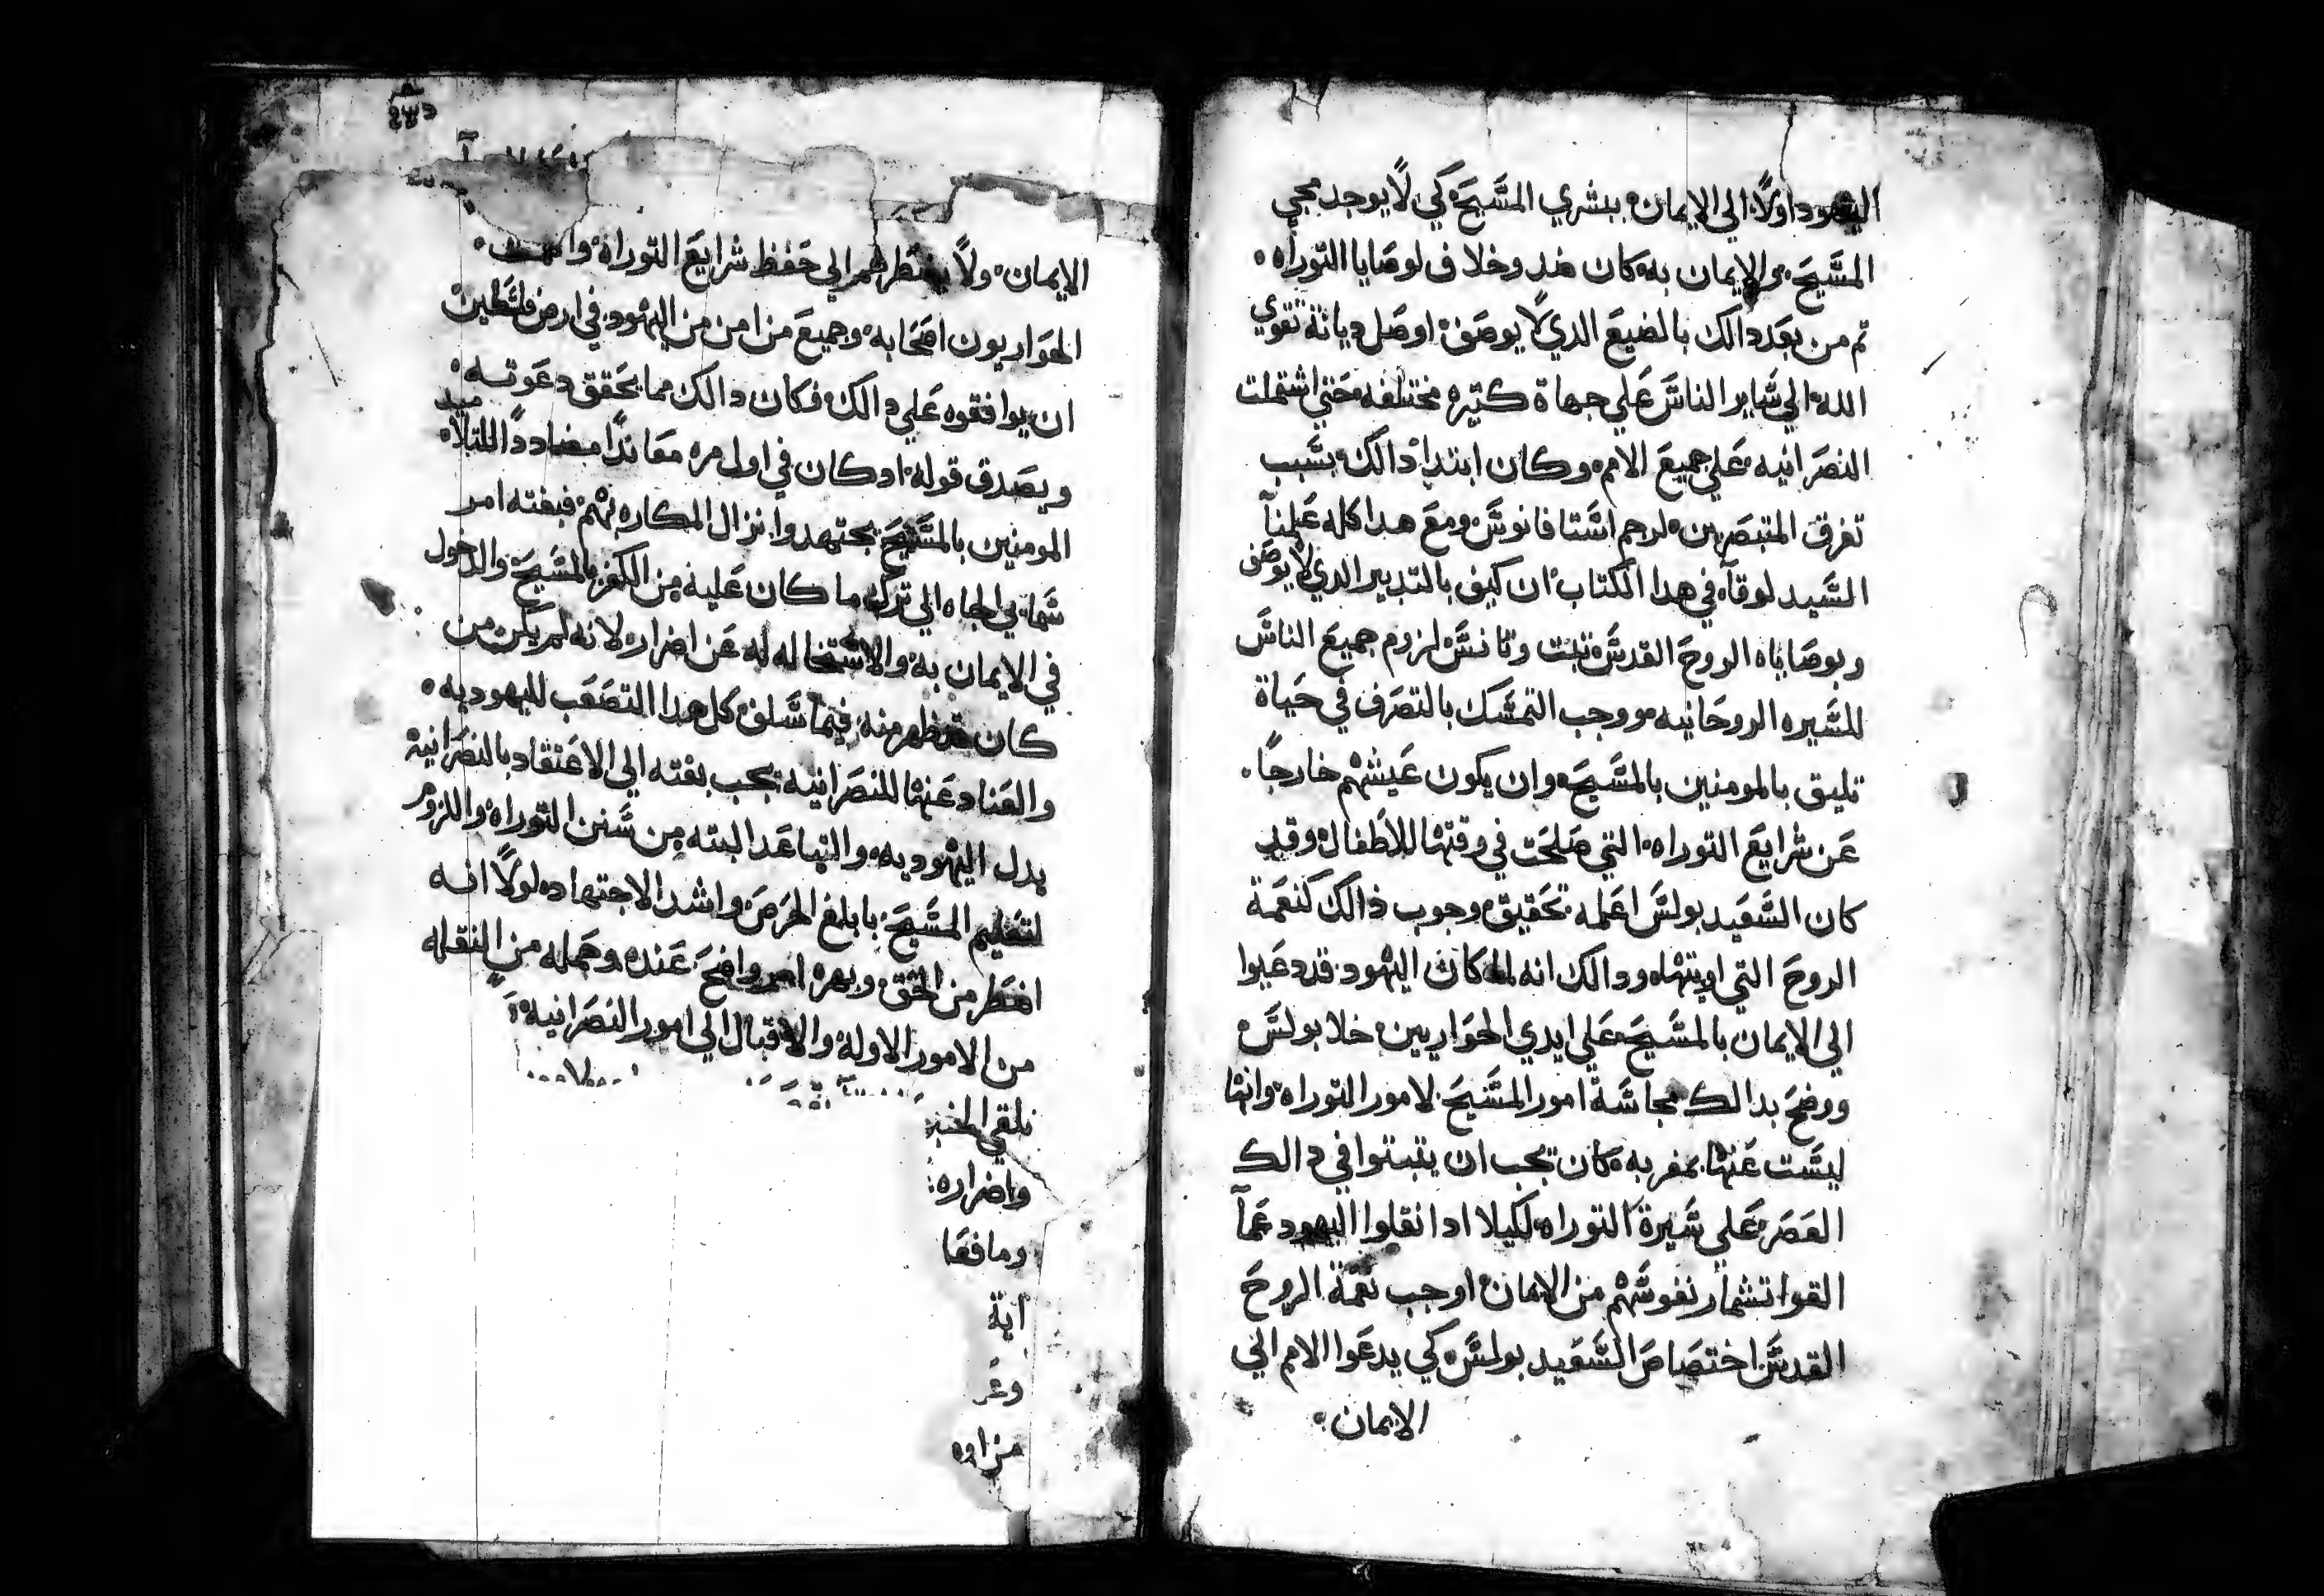 اليهود اولًا الي الايمان ببشري المسَّيحَ كي لًا يوجد مجي
المسَّيحَ والايمان به كان ضد وخلاف لوصَايا التوراه
تم من بعَد دالك بالضيعَ الدي لًا يوصَف اوصَل ديانة تقوي
الله الي سَّاير الناسَّ عَلي جهاة كتيره مختلفه حَتي اشتملت
النصَرانيه عَلي جميعَ الامم وكان ابتدا دالك بسَّبب
تفرق المتبصَرين لرجم اسَّتافانوسَّ ومعَ هدا كله عَلمنا
السَّيد لوقا في هدا الكتاب ان كيف بالتدبير الدي لًا يوصَف
وبوصَاياه الروحَ القدسَّ تبت وتانسَّ لزوم جميعَ الناسَّ
للسَّيره الروحَانيه ووجب التمسَّك بالتصَرف في حَياة
تليق بالمومنين بالمسَّيحَ وان يكون عَيشهم خارجًا
عَن شرايعَ التوراه التي صَلحَت في وقتها للاطفال وقد
كان السَّعَيد بولسَّ اعَلمه تحَقيق وجوب ذالك كنعَمة
الروحَ التي اويتها ودالك انه لما كان اليهود قد دعَيوا
الي الايمان بالمسَّيحَ عَلي ايدي الحَواريين خلا بولسَّ
ووضحَ بدالك مجانسَّة امور المسَّيحَ لامور التوراه وانها
ليسَّت عَنها بمغربه كان يجب ان يتبتوا في دالك
العَصَر عَلي سَّيرة التوراه لكيلا ادا نقلوا اليهود عَما
القوا تشمار نفوسَّهم من الايمان اوجب نعَمة الروحَ
القدسَّ اختصَاصَ السَّعَيد بولسَّ كي يدعَوا الامم الي
الايمان
الايمان ولًا يضطرهم الي حَفظ شرايعَ التوراه
الحَواريون اصَحَابه وجميعَ من امن من اليهود في ارض فلسَّطين
ان يوافقوه عَلي دالك فكان دالك مما يحَقق دعَوته
ويصَدق قوله اد كان في اول مره معَاندًا مضاددًا للتلاميد
المومنين بالمسَّيحَ يجتهدوا نزال المكاره بهم فبغته امر
سَّمايي الجاه الي ترك ما كان عَليه من الكفر بالمسَّيحَ والدخول
في الايمان به والاسَّتحاله له عَن اضراره لانه لم يكن من
كان قد ظهر منه فيما سَّلف كل هدا التصَعَب لليهوديه
والعَناد عَنها للنصَرانيه يجب بغته الي الاعَتقاد بالنصَرانية
بدل اليهوديه والتباعَد البته من سَّنن التوراه واللزوم
لتعَليم المسَّيحَ بابلغ الحَرصَ واشد الاجتهاد لولًا انه
اضطر من الحَق وبهره امر واضحَ عَنده وحَمله من النقله
من الامور الاوله والاقبال الي امور النصَرانية
نلقي الخبر
واضراره
ومافعَا
اية
وعَر